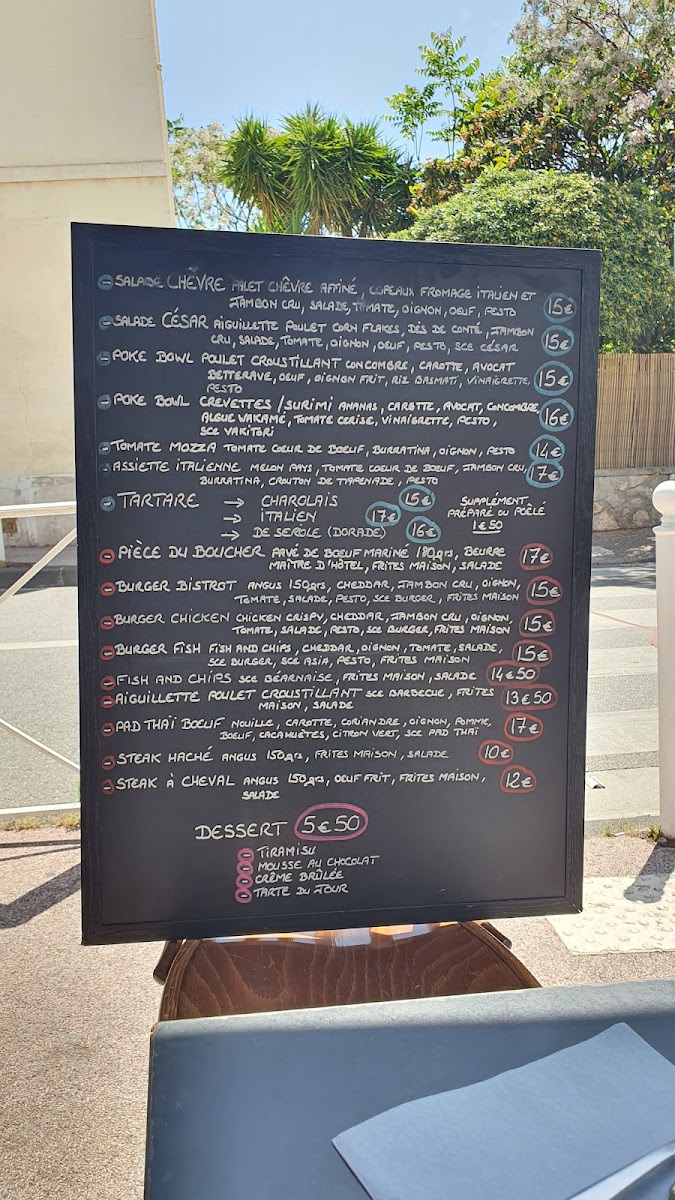 SALADE CHÈVRE PALET CHÈVRE AFFINÉ, COPEAUX FROMAGE ITALIEN ET
JAMBON CRU, SALADE, TOMATE, OIGNON, OEUF, PESTO 15€
SALADE CÉSAR AIGUILLETTE POULET CORN FLAKES, DÈS DE CONTÉ, JAMBON
CRU, SALADE, TOMATE, OIGNON, OEUF, PESTO, SCE CÉSAR 15€
POKE BOWL POULET CROUSTILLANT CONCOMBRE, CAROTTE, AVOCAT
BETTERAVE, OEUF, OIGNON FRIT, RIZ BASMATI, VINAIGRETTE, 15€
PESTO
POKE BOWL CREVETTES / SURIMI ANANAS, CAROTTE, AVOCAT, CONCOMBRE,
ALGUE WAKAMÉ, TOMATE CERISE, VINAIGRETTE, PESTO, 16€
SCE YAKITORI
TOMATE MOZZA TOMATE COEUR DE BOEUF, BURRATINA, OIGNON, PESTO 14€
ASSIETTE ITALIENNE MELON PAYS, TOMATE COEUR DE BOEUF, JAMBON CRU, 17€
BURRATINA, CROUTON DE TAPENADE, PESTO
TARTARE → CHAROLAIS 15€ SUPPLÉMENT
→ ITALIEN 17€ PRÉPARÉ OU POÊLÉ
→ DE SERIOLE (DORADE) 16€ 1€50
PIÈCE DU BOUCHER PAVÉ DE BOEUF MARINÉ 180grs, BEURRE 17€
MAÎTRE D'HÔTEL, FRITES MAISON, SALADE
BURGER BISTROT ANGUS 150grs, CHEDDAR, JAMBON CRU, OIGNON, 15€
TOMATE, SALADE, PESTO, SCE BURGER, FRITES MAISON
BURGER CHICKEN CHICKEN CRISPY, CHEDDAR, JAMBON CRU, OIGNON, 15€
TOMATE, SALADE, PESTO, SCE BURGER, FRITES MAISON
BURGER FISH FISH AND CHIPS, CHEDDAR, OIGNON, TOMATE, SALADE, 15€
SCE BURGER, SCE ASIA, PESTO, FRITES MAISON
FISH AND CHIPS SCE BÉARNAISE, FRITES MAISON, SALADE 14€50
AIGUILLETTE POULET CROUSTILLANT SCE BARBECUE, FRITES 13€50
MAISON, SALADE
PAD THAÏ BOEUF NOUILLE, CAROTTE, CORIANDRE, OIGNON, POMME, 17€
BOEUF, CACAHUÈTES, CITRON VERT, SCE PAD THAÏ
STEAK HACHÉ ANGUS 150grs, FRITES MAISON, SALADE 10€
STEAK À CHEVAL ANGUS 150grs, OEUF FRIT, FRITES MAISON, 12€
SALADE
DESSERT 5€50
TIRAMISU
MOUSSE AU CHOCOLAT
CRÈME BRÛLÉE
TARTE DU JOUR